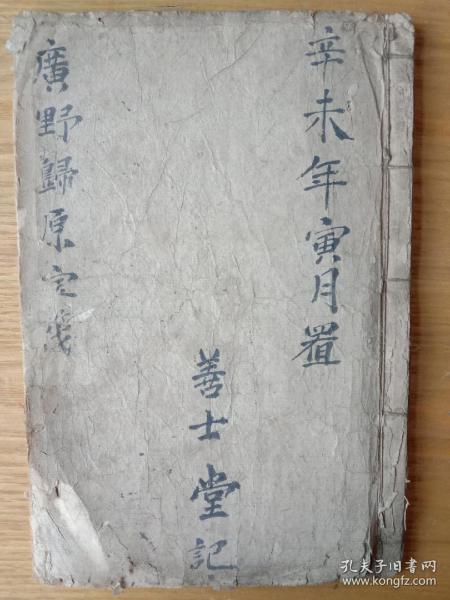 辛未年寅月置
善士堂記
廣野歸原定
孔夫子旧书网
www.kongfz.com